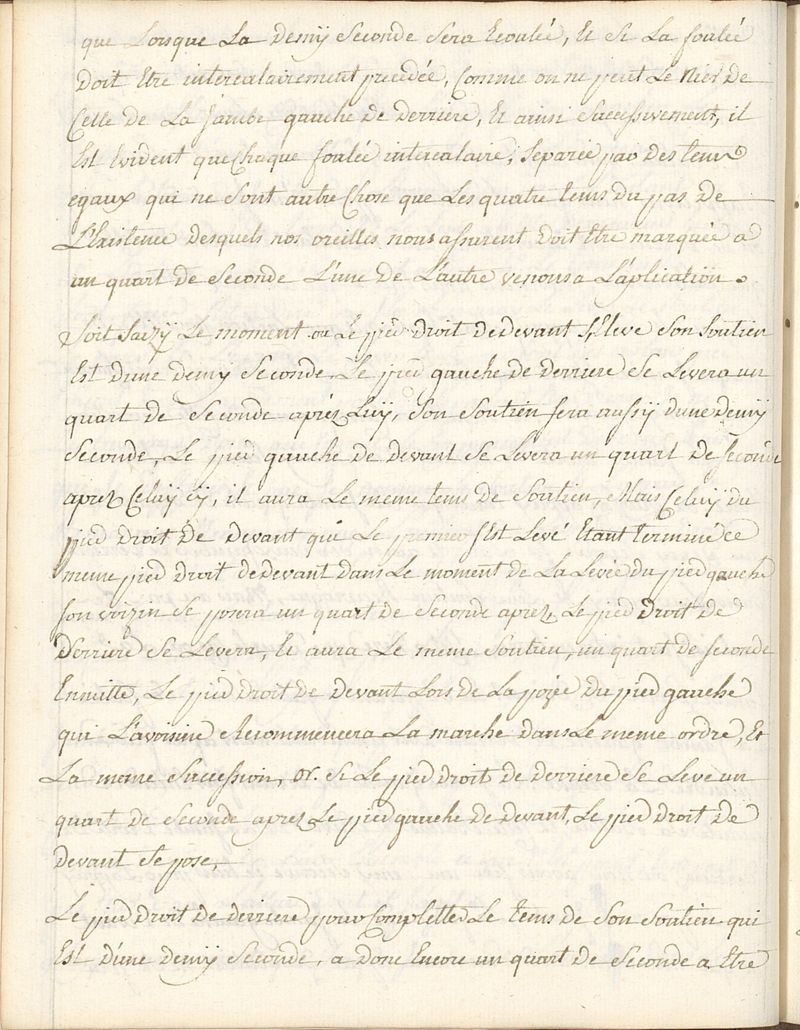 que Lorsque La demÿ Seconde Sera Ecoulée, Et Si La foulée
doit Etre intercalairement precedée, Comme on ne peut Le Nier de
Celle de La Jambe gauche de derriere, Et ainsi Successivement, il
Est Evident que Chaque foulée intercalaire, Separée par des tems
egaux qui ne Sont autre Chose que Les quatre tems du pas de
L'Existence desquels nos oreilles nous assurent doit Etre marquée a
un quart de Seconde L'une de L'autre venons a L'aplication.
Soit Saizÿ Le moment ou Le pied droit de devant S'Eleve Son Soutien
Est d'une demÿ Seconde, Le pied gauche de derriere Se Levera un
quart de Seconde apréz Luÿ, Son Soutien sera aussÿ d'une demÿ
Seconde, Le pied gauche de devant Se Levera un quart de Seconde
aprez Celuÿ cÿ, il aura Le meme tems de Soutien, Mais Celuÿ du
pied droit de devant qui Le premier s'Est Levé Etant terminé ce
meme pied droit de devant dans Le moment de La Levée du pied gauche
son voizin Se posera un quart de Seconde aprez, Le pied droit de
derriere Se Levera, Et aura Le meme Soutien, un quart de seconde
Ensuitte, Le pied droit de devant Lors de La pozée du pied gauche
qui L'avoisine Recommencera La marche dans Le meme ordre, Et
La meme Succession, or. Si Le pied droit de derriere Se Leve un
quart de Seconde aprez Le pied gauche de devant, Le pied droit de
devant Se pose,
Le pied droit de derriere pour Completter Le tems de Son Soutien qui
Est d'une demÿ Seconde, a donc Encore un quart de Seconde a Etre